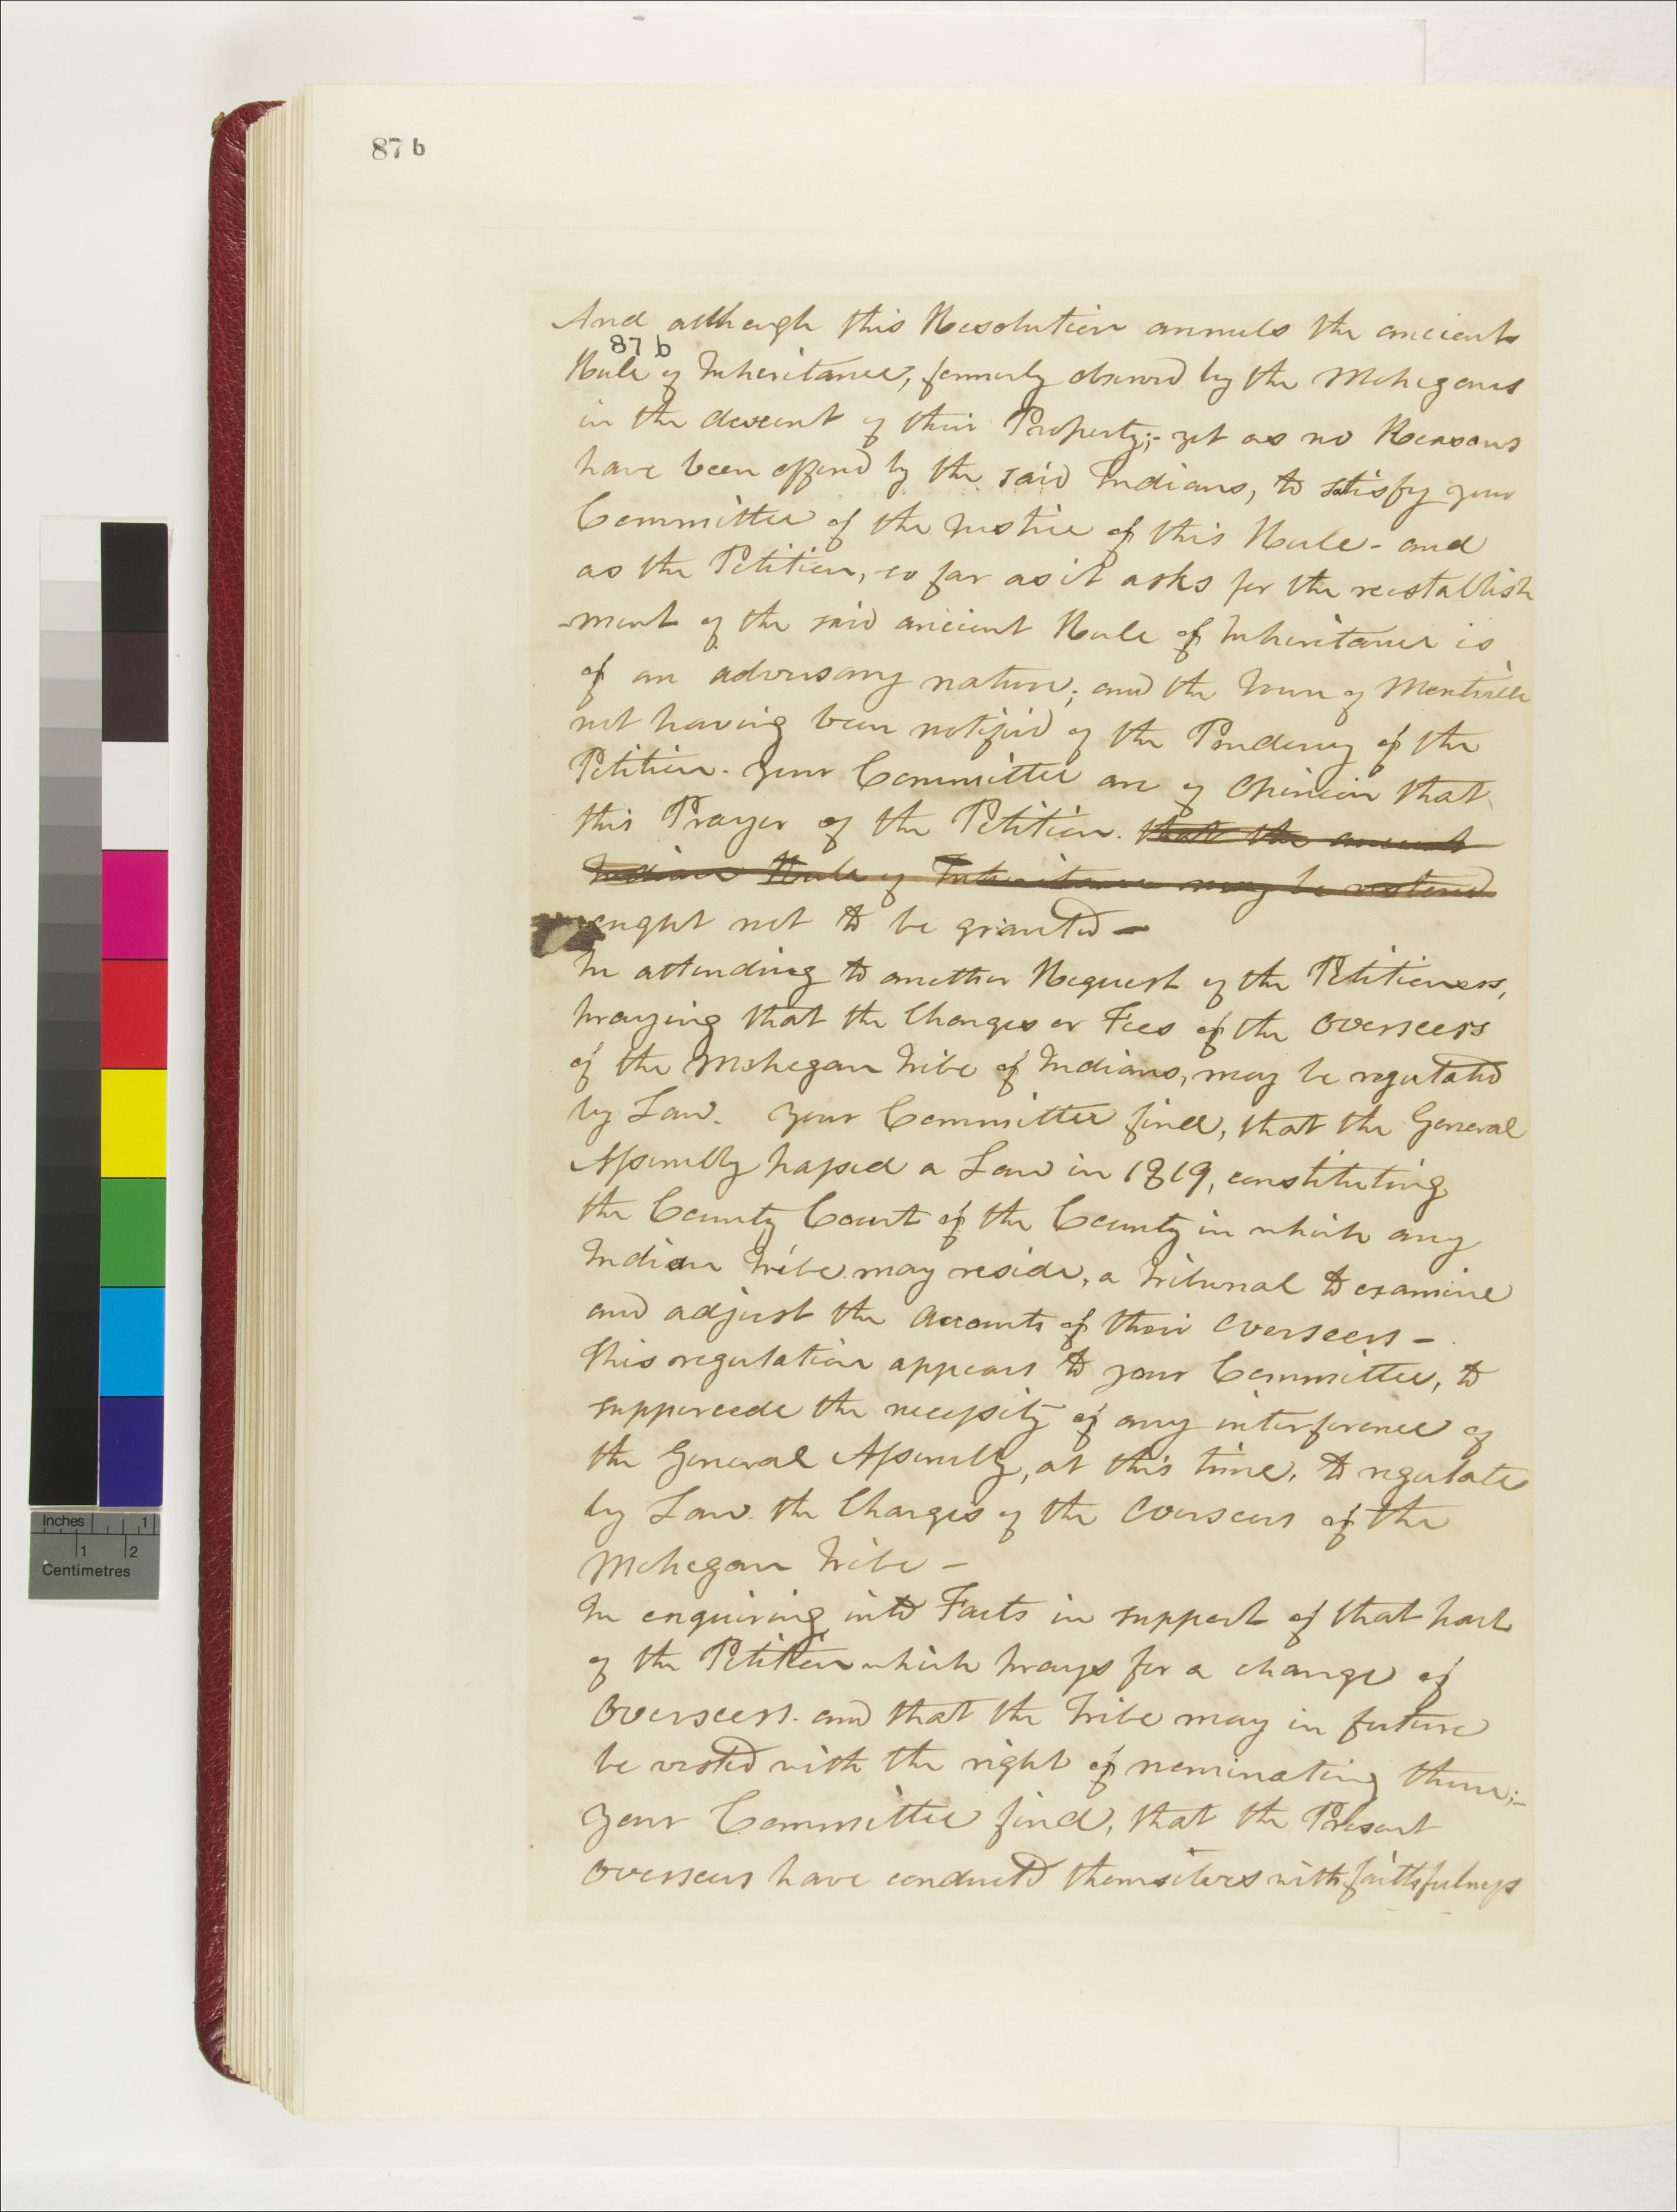 87 b
And although this Resolution annuls the ancient
87 b
Rule of Inheritance, formerly observed by the Mohegans
in the descent of their Property;- yet as no Reasons
have been offered by the said Indians, to satisfy your
Committee of the Justice of this Rule - and
as the Petition, so far as it asks for the reestablish
-ment of the said ancient Rule of Inheritance is
of an adversary nature; and the Town of Montville
not having been notified of the Pendency of the
Petition. your Committee are of Opinion that
this Prayer of the Petition. that the ancient
Indian Rule of Inheritance may be restored
ought not to be granted -
In attending to another Request of the Petitioners,
praying that the Charges or Fees of the Overseers
of the Mohegan Tribe of Indians, may be regulated
by Law. your Committee find, that the General
Assembly passed a Law in 1819, constituting
the County Court of the County in which any
Indian Tribe may reside, a Tribunal to examine
and adjust the Accounts of their Overseers -
This regulation appears to your Committee, to
suppercede the necessity of any interference of
the General Assembly, at this time, to regulate
by Law the Charges of the Overseers of the
Mohegan Tribe -
In enquiring into Facts in support of that part
of the Petition which prays for a change of
Overseers. and that the Tribe may in future
be vested with the right of nominating them;-
your Committee find, that the Present
Overseers have conducted themselves with faithfulness
Inches 1
1 2
Centimetres